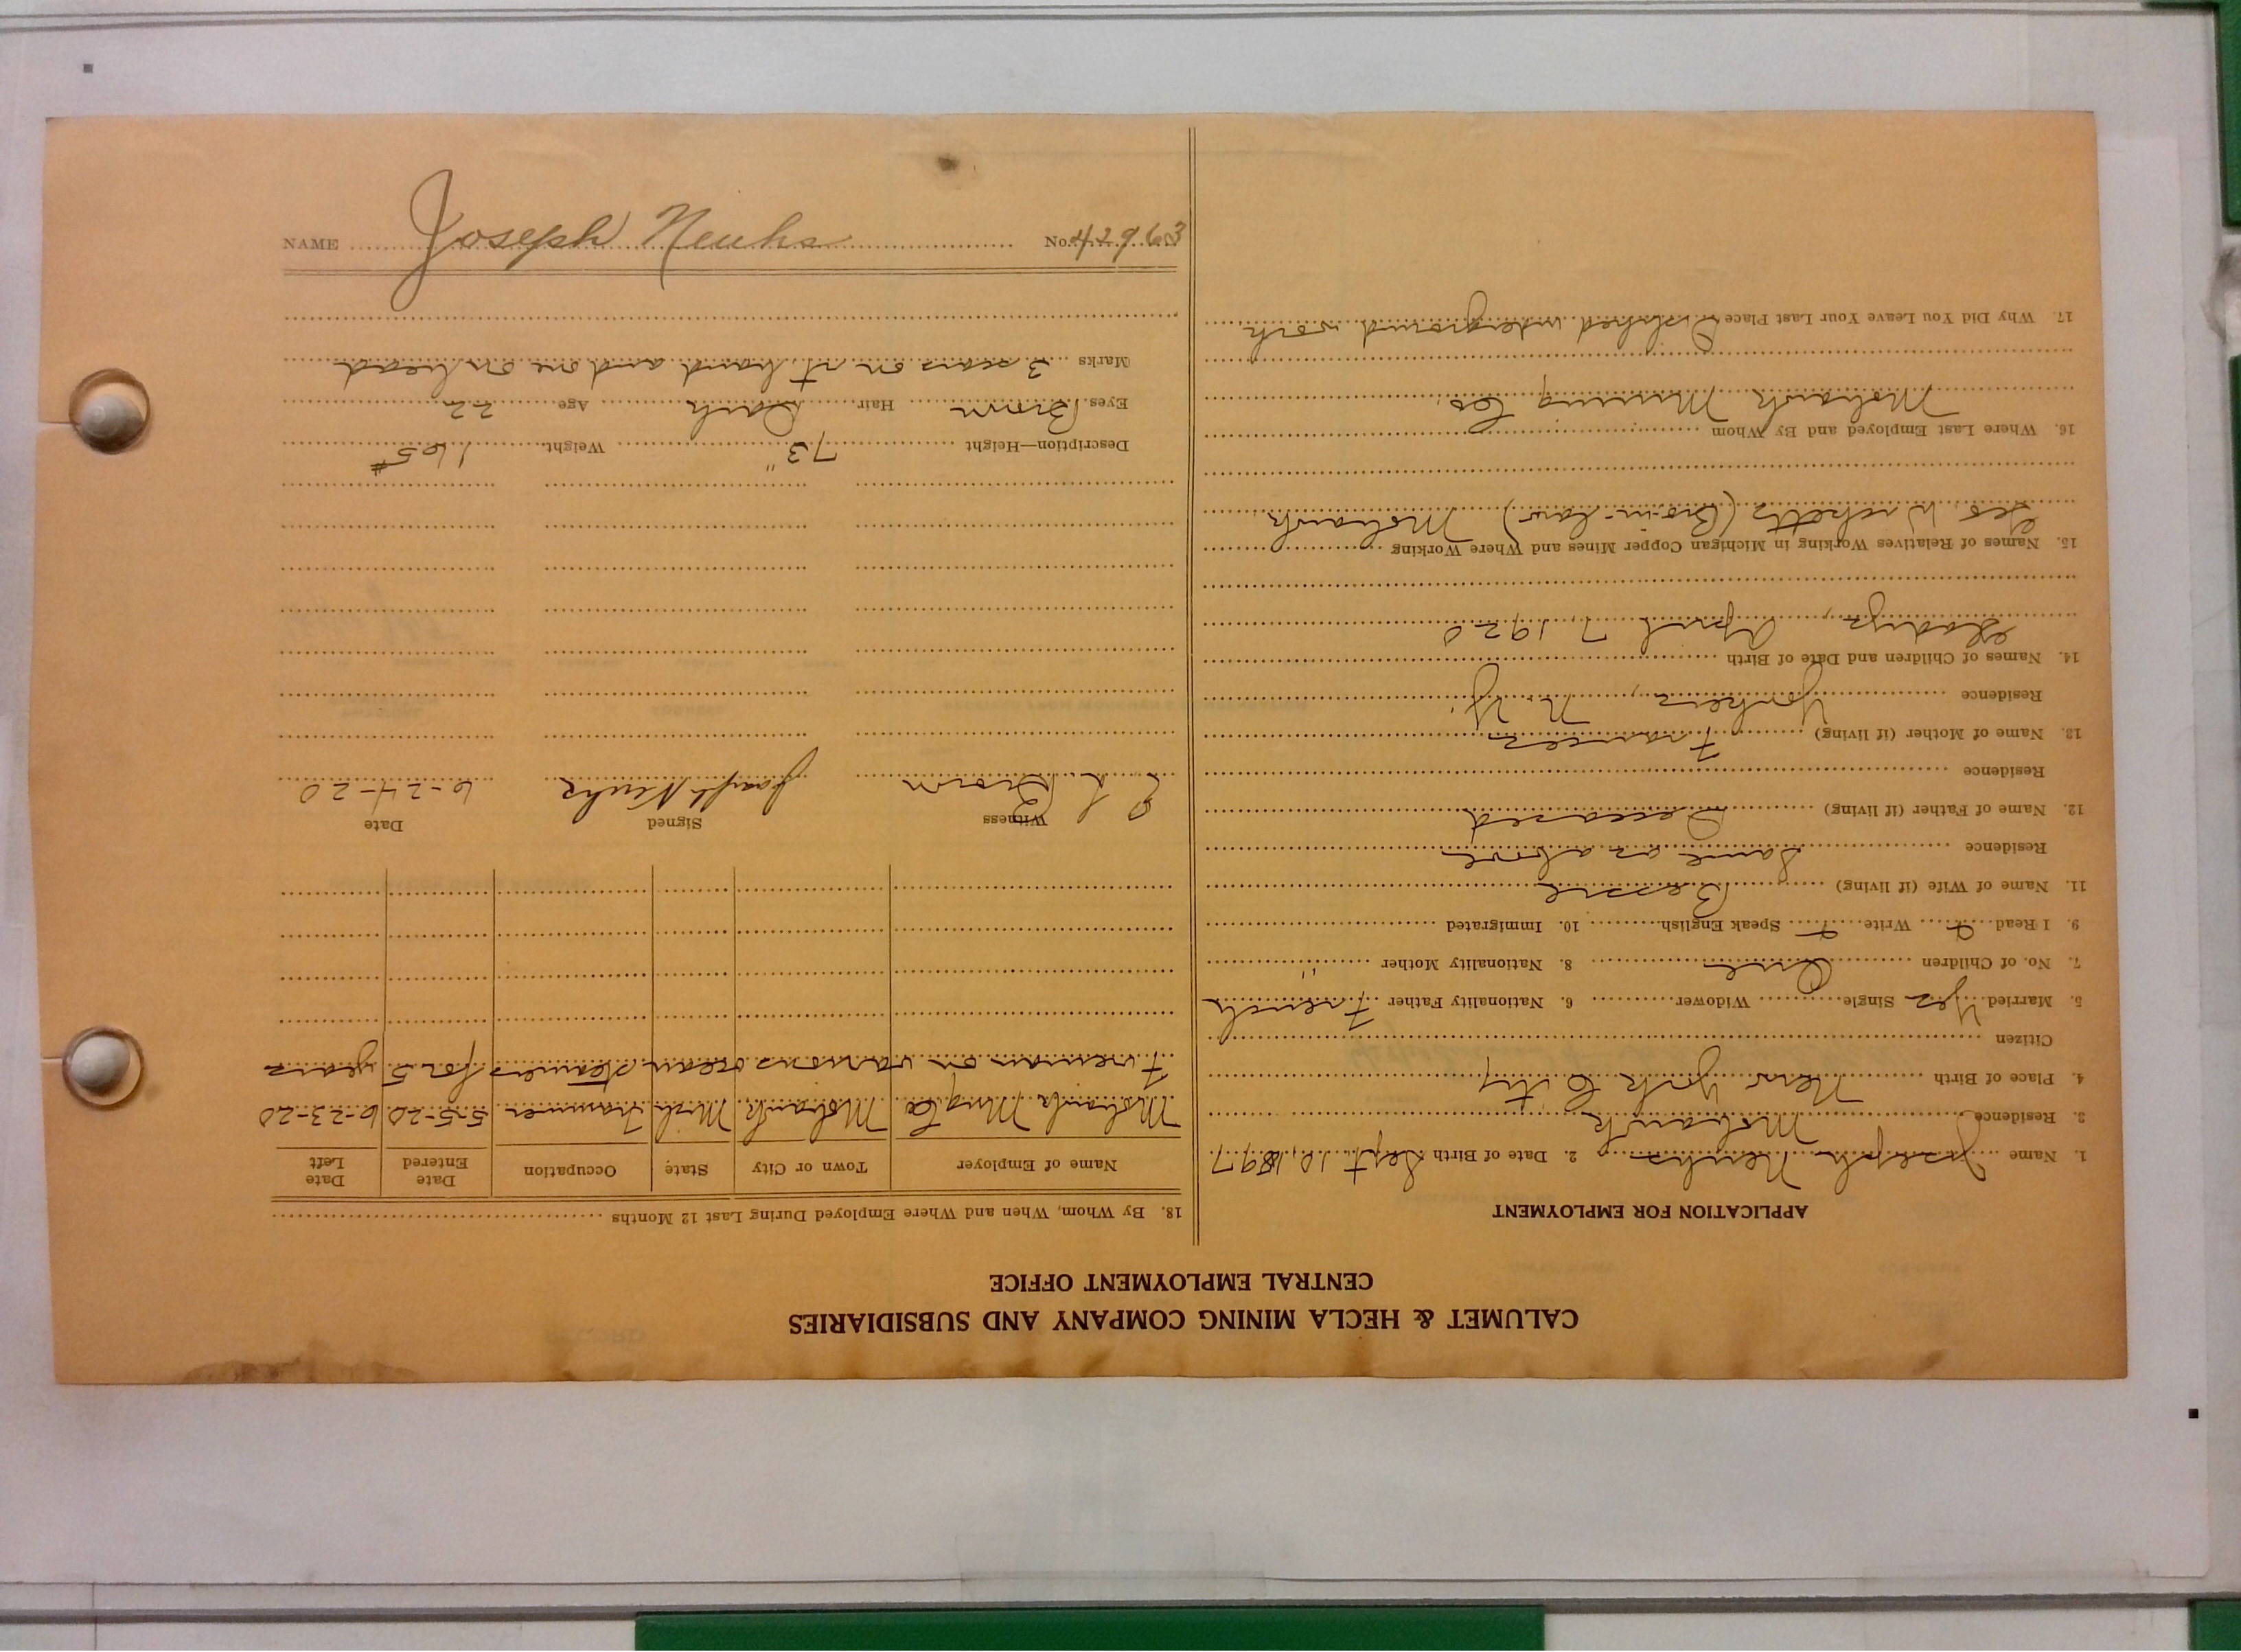 CALUMET & HECLA MINING COMPANY AND SUBSIDIARIES
CENTRAL EMPLOYMENT OFFICE
APPLICATION FOR EMPLOYMENT
1. Name Joseph Neuhs 2. Date of Birth Sept 10, 1897
3. Residence Mohawk
4. Place of Birth New York City
Citizen
5. Married Yes Single Widower 6. Nationality Father French
7. No. of Children One 8. Nationality Mother "
9. I Read Write Speak English 10. Immigrated
11. Name of Wife (if living) Bessie
Residence Same as above
12. Name of Father (if living) Deceased
Residence
13. Name of Mother (if living) Frances
Residence Yonkers, N. Y.
14. Names of Children and Date of Birth
Gladys, April 7, 1920
15. Names of Relatives Working in Michigan Copper Mines and Where Working
Geo. (Bro-in-law) Mohawk
16. Where Last Employed and By Whom
Mohawk Mining Co.
17. Why Did You Leave Your Last Place Disliked underground work
18. By Whom, When and Where Employed During Last 12 Months
Name of Employer Town or City State Occupation Date Entered Date Left
Mohawk Mng Co Mohawk Mich Trammer 5-5-20 6-23-20
Fireman on various ocean steamers for 5 years
Witness Signed Date
Brown Joseph Neuhs 6-24-20
Description—Height 73" Weight 165#
Eyes Brown Hair Dark Age 22
Marks 3 scars on rt. hand and one on head
NAME Joseph Neuhs No. 42963